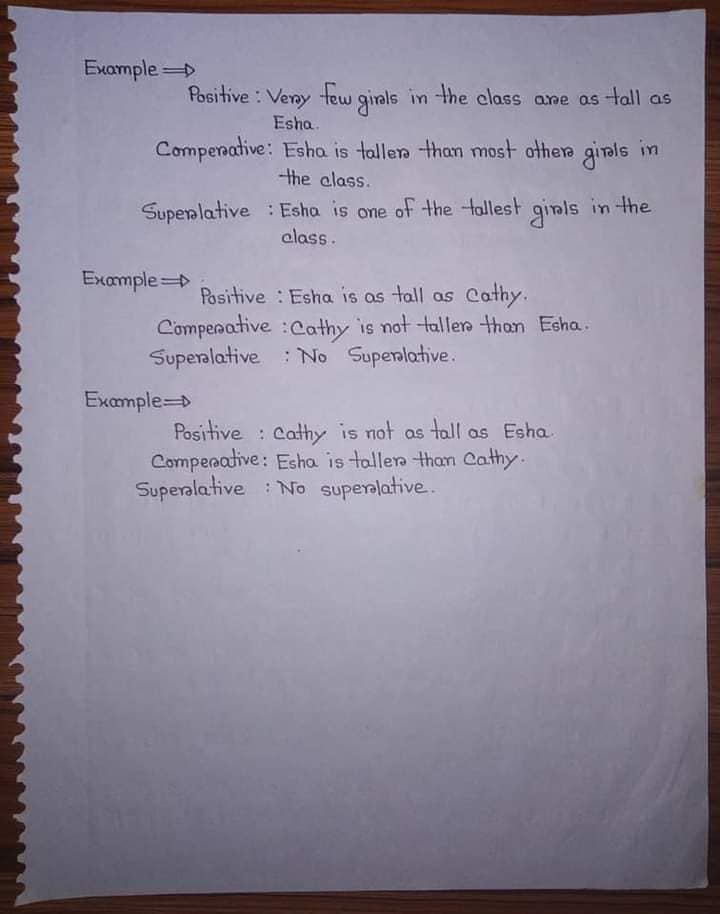 Example ⇒
Positive : Very few girls in the class are as tall as
Esha.
Comperative: Esha is taller than most other girls in
the class.
Superlative : Esha is one of the tallest girls in the
class.
Example ⇒
Positive : Esha is as tall as Cathy.
Comperative : Cathy is not taller than Esha.
Superlative : No Superlative.
Example ⇒
Positive : Cathy is not as tall as Esha.
Comperative: Esha is taller than Cathy.
Superlative : No superlative.